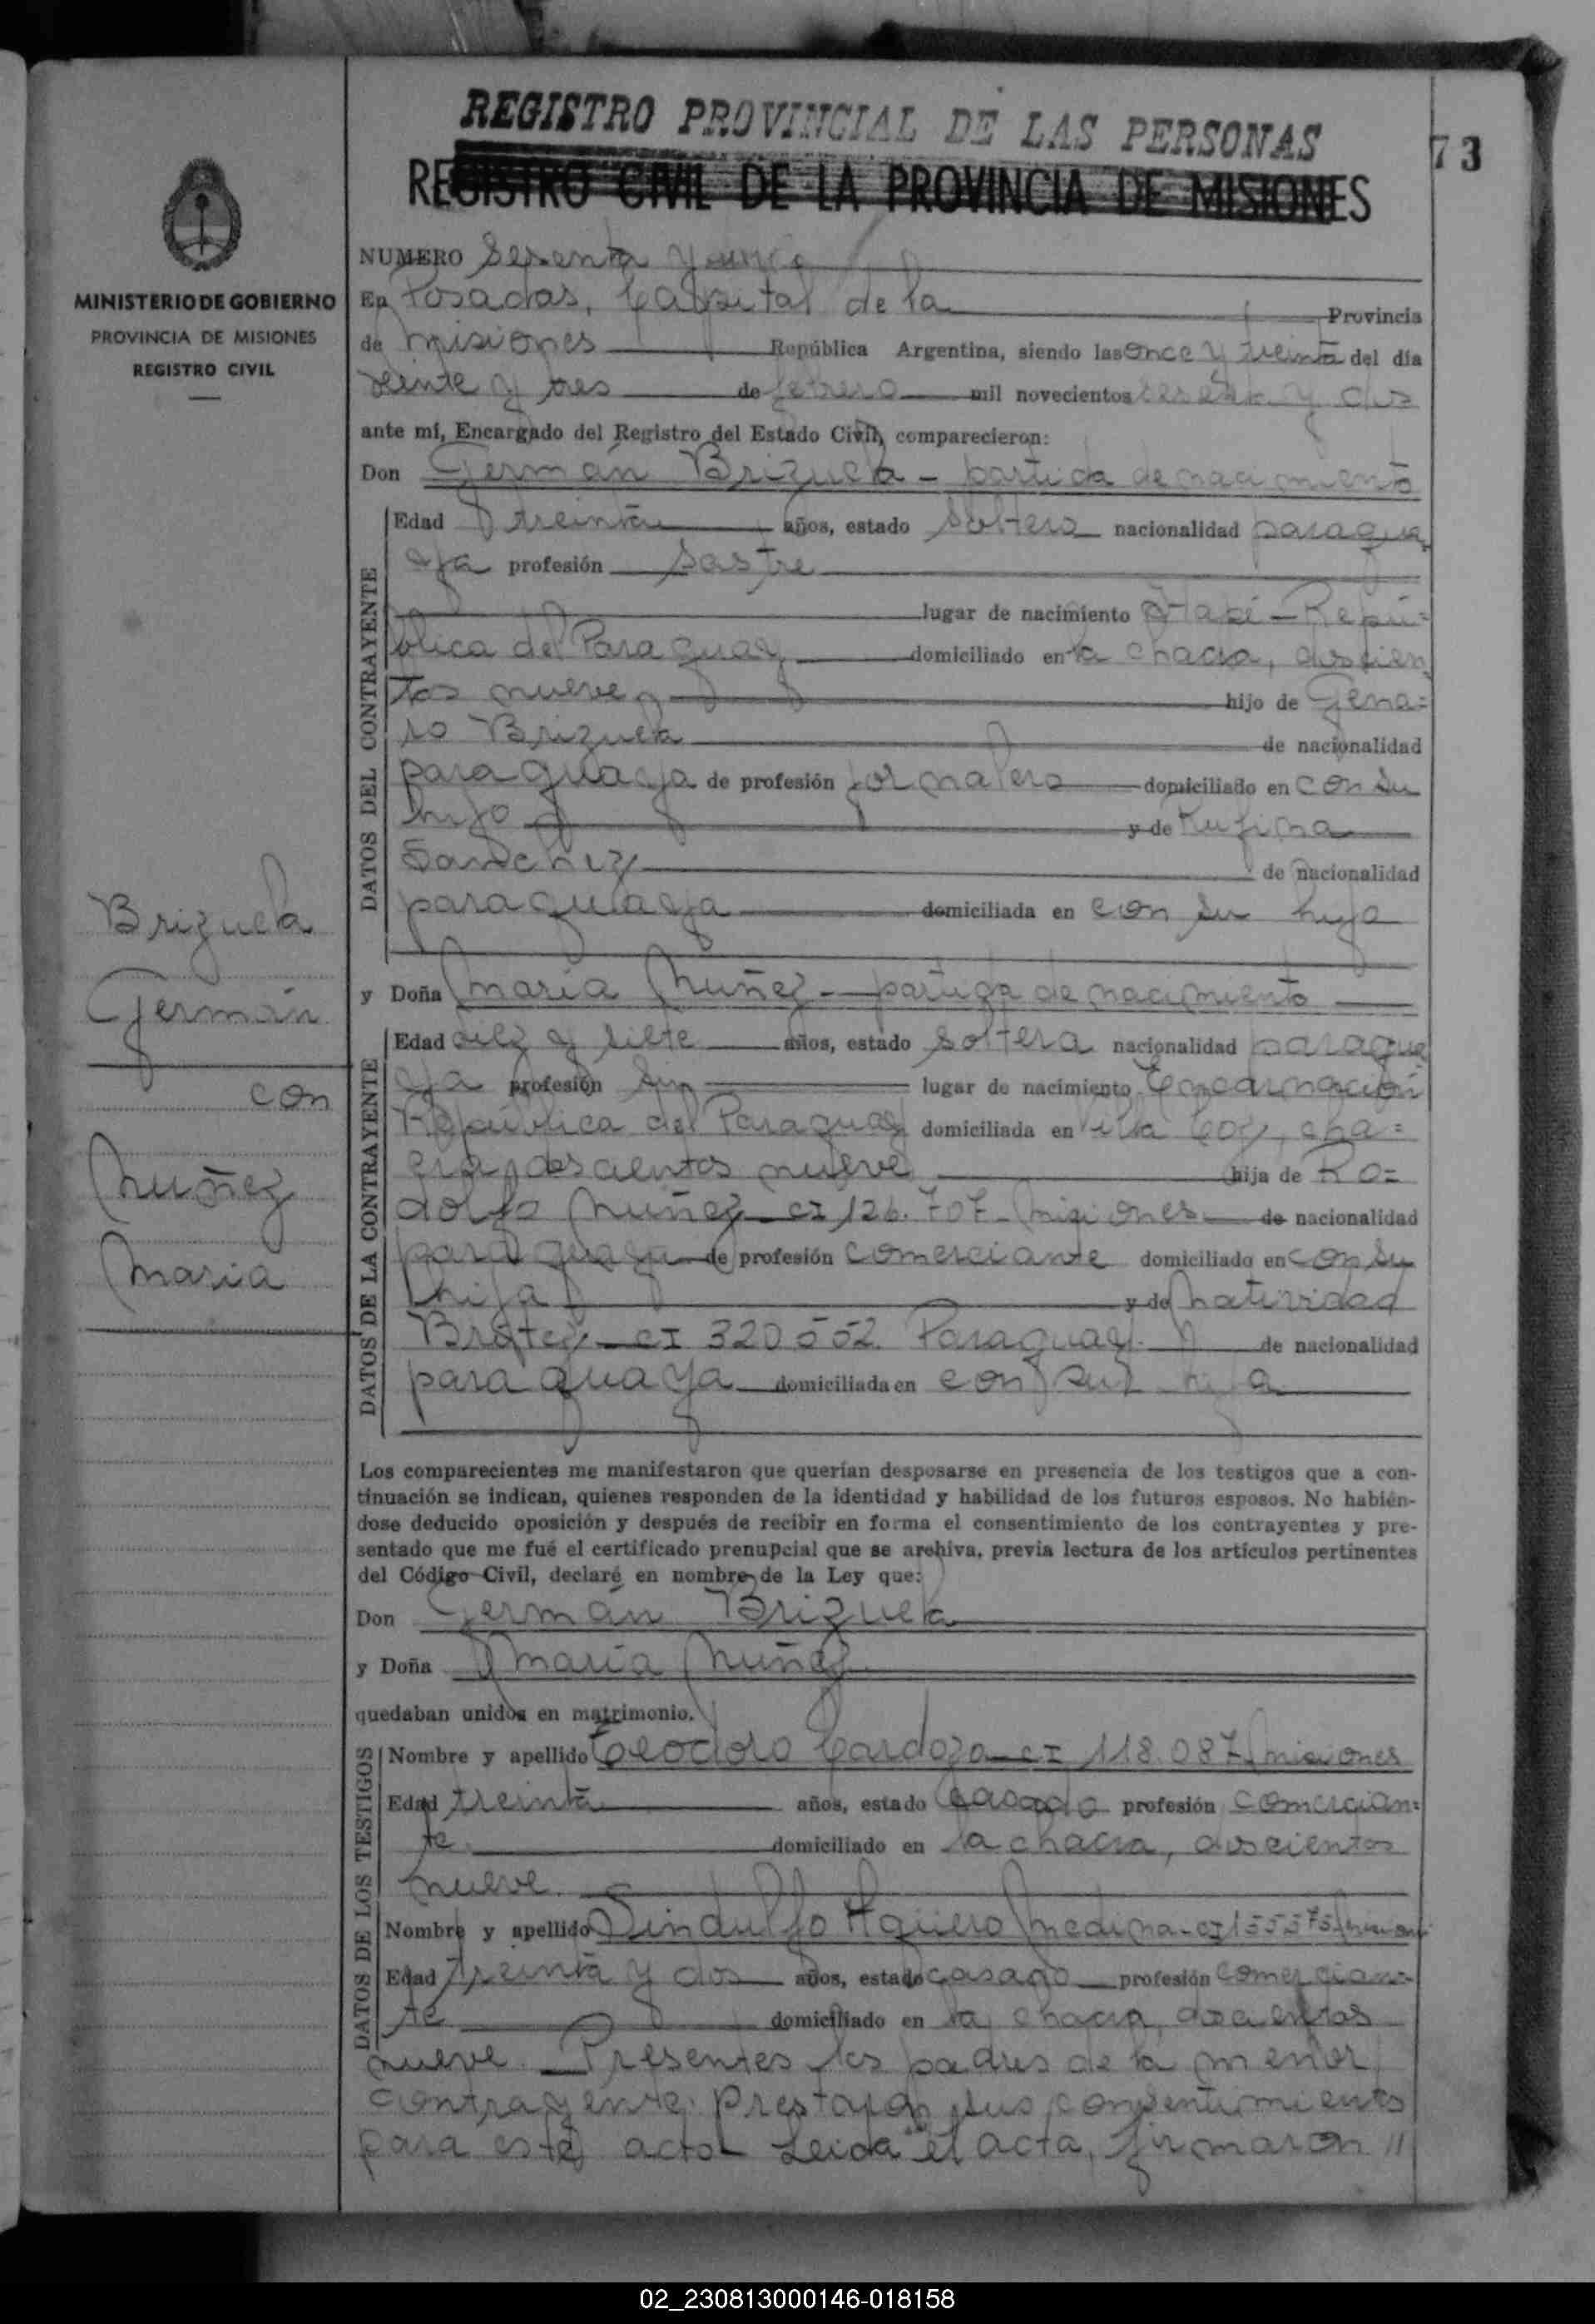 REGISTRO PROVINCIAL DE LAS PERSONAS
73
REGISTRO CIVIL DE LA PROVINCIA DE MISIONES
MINISTERIO DE GOBIERNO
PROVINCIA DE MISIONES
REGISTRO CIVIL
NUMERO Sesenta y
En Posadas, Capital de la Provincia
de Misiones República Argentina, siendo las once y treinta del día
veinte y tres de febrero mil novecientos sesenta y dos
ante mí, Encargado del Registro del Estado Civil, comparecieron:
Don Germán Brizuela - partida de nacimiento
DATOS DEL CONTRAYENTE
Edad treinta años, estado soltero nacionalidad paragua
ya profesión sastre
lugar de nacimiento Itapé - Repú=
blica del Paraguay domiciliado en la chacra, doscien
tos nueve hijo de Gena=
ro Brizuela de nacionalidad
paraguaya de profesión jornalero domiciliado en con su
hijo y de Rufina
Sanchez de nacionalidad
paraguaya domiciliada en con su hijo
y Doña María Nuñez - partida de nacimiento
DATOS DE LA CONTRAYENTE
Edad diez y siete años, estado soltera nacionalidad paragua
ya profesión sin lugar de nacimiento Encarnación
República del Paraguay domiciliada en villa Coz, cha=
cra, doscientos nueve hija de Ro=
dolfo Nuñez CI 126.707 - Misiones de nacionalidad
paraguaya de profesión comerciante domiciliado en con su
hija y de Natividad
CI 320552 Paraguay. de nacionalidad
paraguaya domiciliada en con su hija
Brizuela
Germán
con
Nuñez
María
Los comparecientes me manifestaron que querían desposarse en presencia de los testigos que a con-
tinuación se indican, quienes responden de la identidad y habilidad de los futuros esposos. No habién-
dose deducido oposición y después de recibir en forma el consentimiento de los contrayentes y pre-
sentado que me fué el certificado prenupcial que se archiva, previa lectura de los artículos pertinentes
del Código Civil, declaré en nombre de la Ley que:
Don Germán Brizuela
y Doña María Nuñez
quedaban unidos en matrimonio.
DATOS DE LOS TESTIGOS
Nombre y apellido Teodoro Cardozo CI 118.087 Misiones
Edad treinta años, estado casado profesión comercian=
te domiciliado en la chacra, doscientos
nueve.
Nombre y apellido Sindulfo Agüero Medina - CI 155575 Misiones
Edad treinta y dos años, estado casado profesión comercian=
te domiciliado en la chacra, doscientos
nueve. Presentes los padres de la menor
contrayente prestaron sus consentimientos
para este acto. Leida el acta, firmaron //
02_230813000146-018158